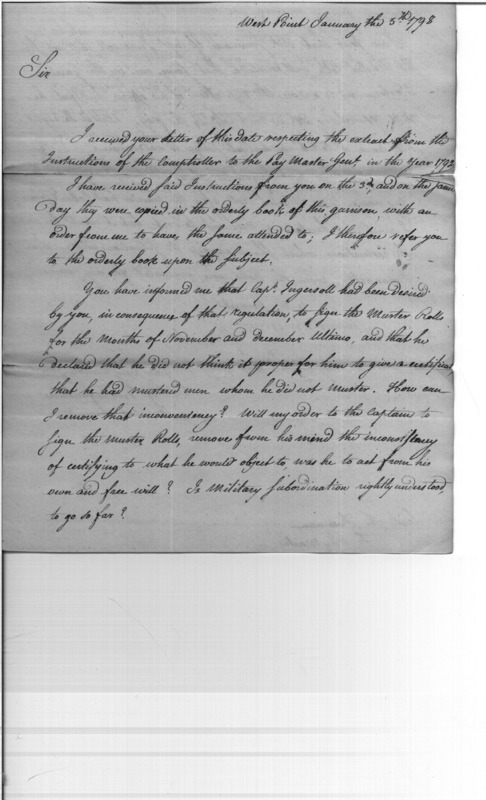 West Point January the 5th 1798
Sir
I received your Letter of this date respecting the extract from the
Instructions of the Comptroller to the Pay Master Genl. in the Year 1792.
I have received said Instructions from you on the 3d, and on the same
day they were copied in the orderly book of this garrison with an
order from me to have, the same attended to; I therefore refer you
to the orderly book upon the subject.
You have informed me that Capt. Ingersoll had been desired
by you, in consequence of that regulation, to sign the Muster Rolls
for the months of November and december Ultimo, and that he
declared that he did not think it proper for him to give a certificate
that he had mustered men whom he did not muster. How can
I remove that inconveniency? Will my order to the Captain to
sign the muster Rolls, remove from his mind the inconsistency
of certifying to what he would object to, was he to act from his
own and free will? Is Military subordination rightly understood
to go so far?